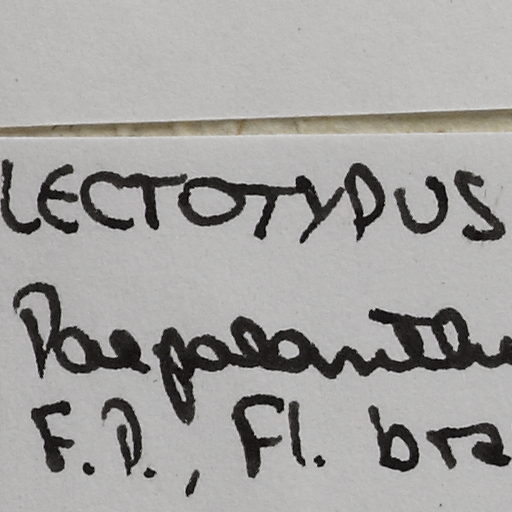 LECTOTYPUS
Paepalanthu
F.P., Fl. bra